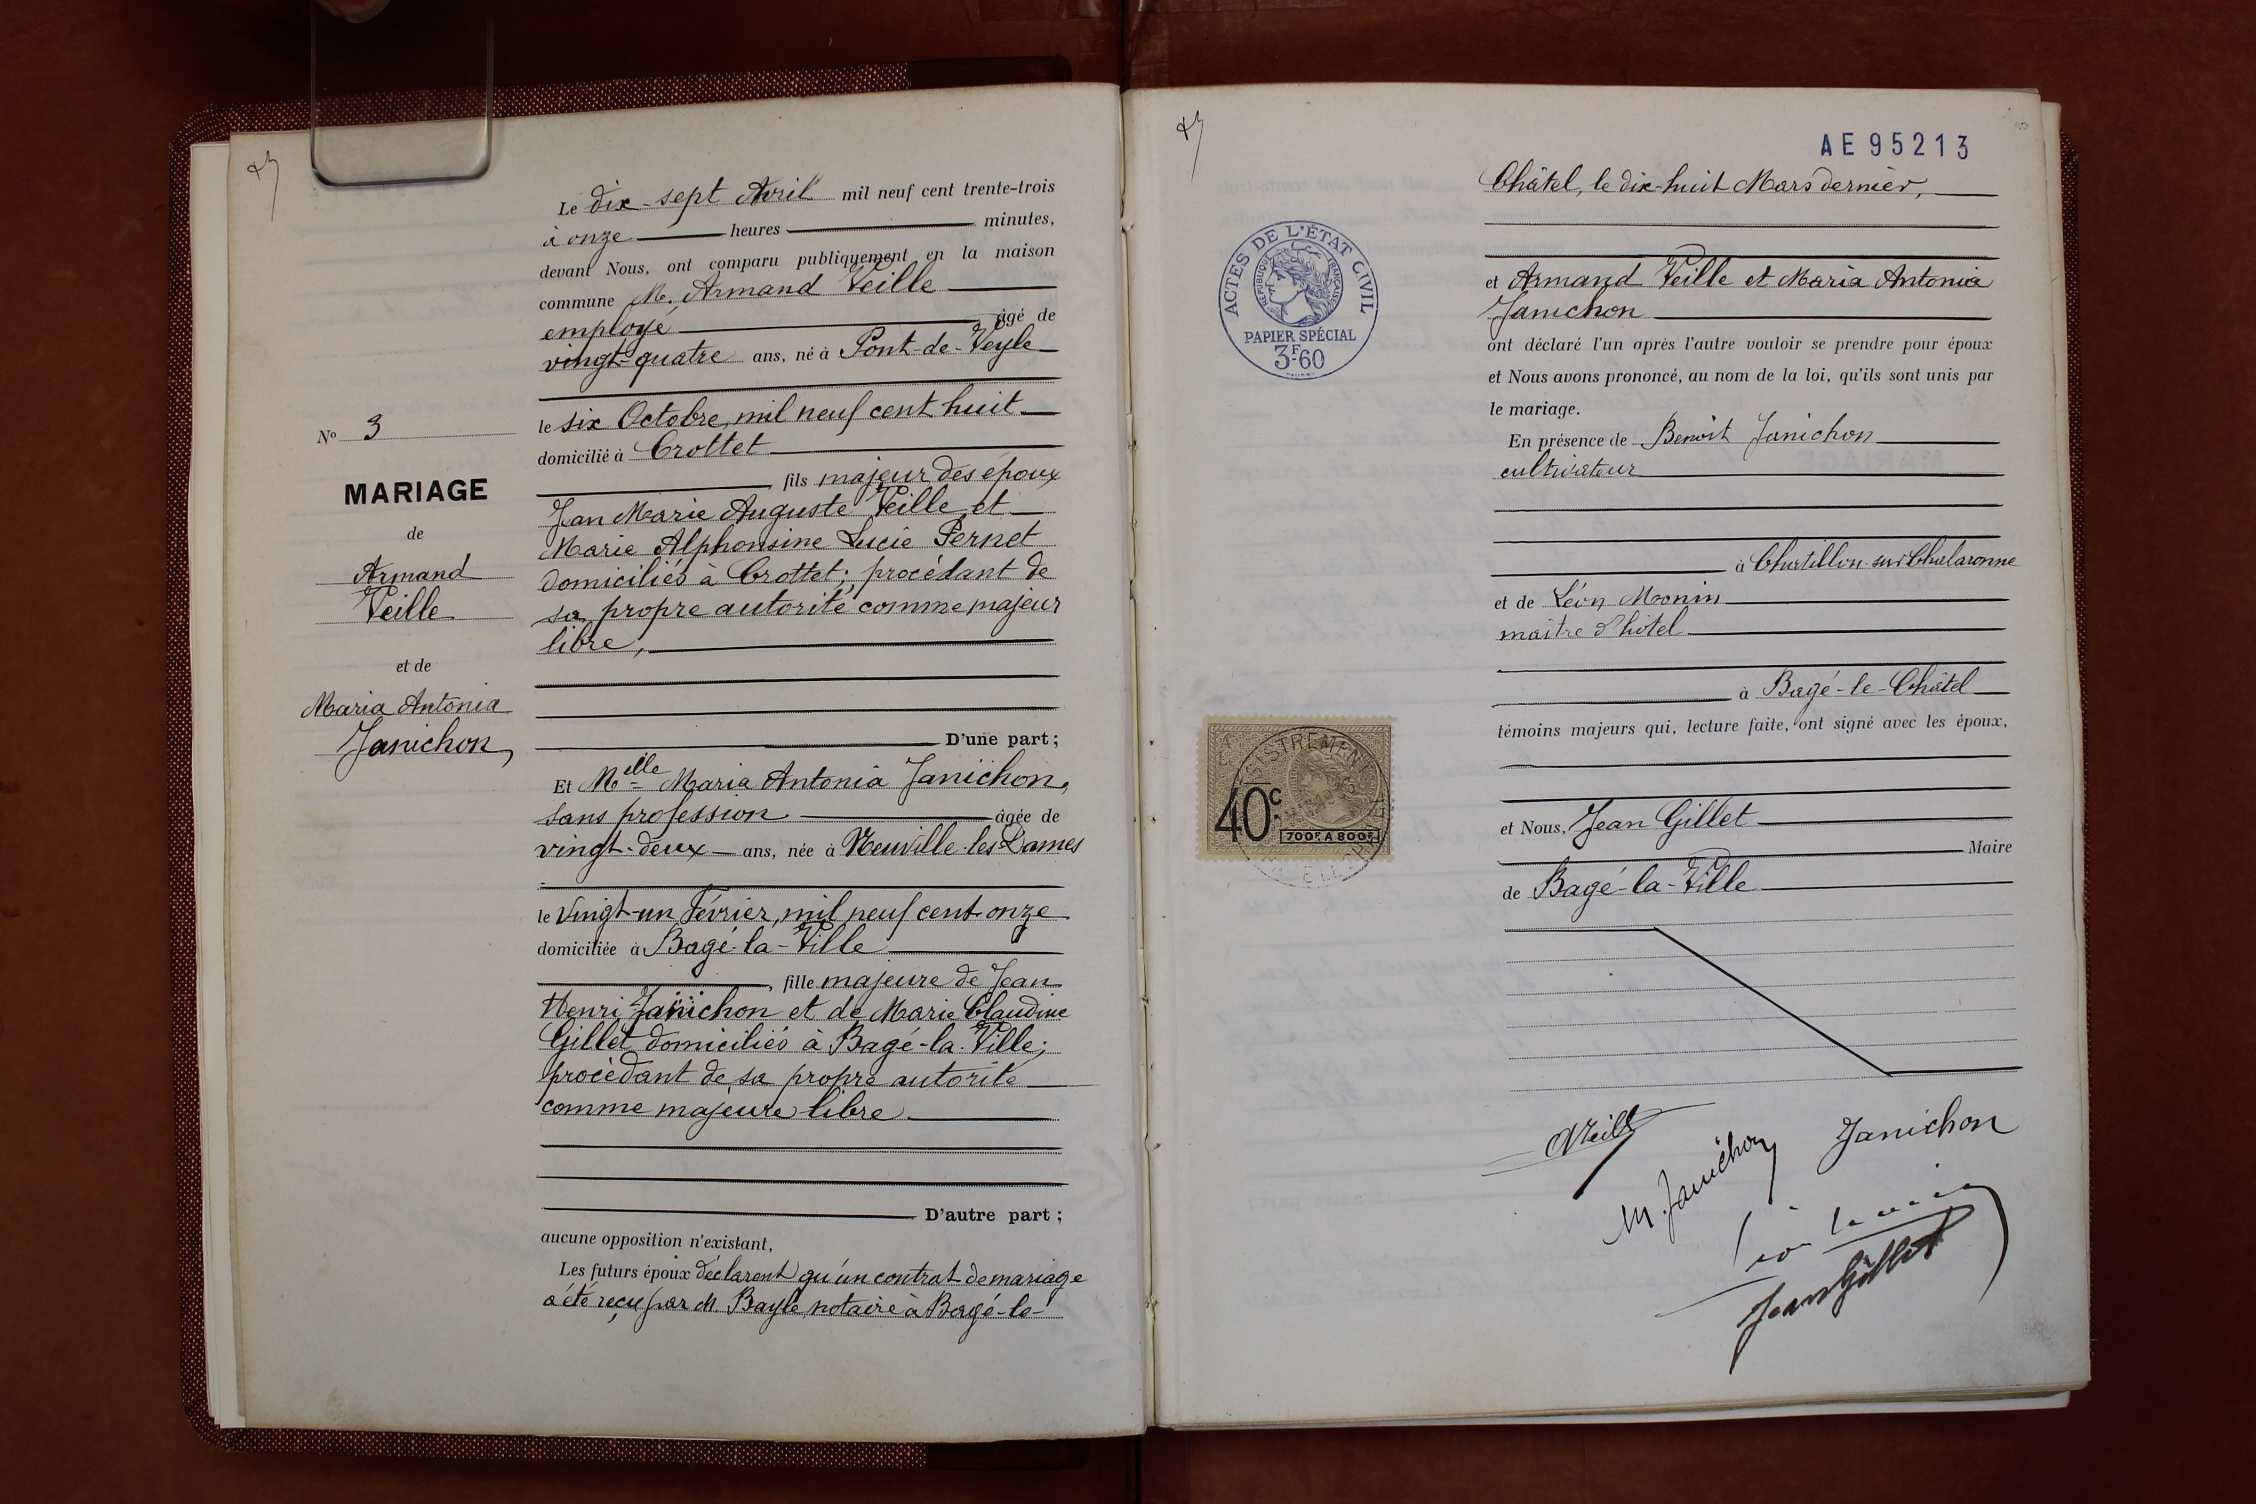 Le dix-sept Avril mil neuf cent trente-trois
à onze heures minutes,
devant Nous, ont comparu publiquement en la maison
commune M. Armand Veille
employé âgé de
vingt-quatre ans, né à Pont-de-Veyle
le six Octobre, mil neuf cent huit
domicilié à Crottet
, fils majeur des époux
Jean Marie Auguste Veille et
Marie Alphonsine Lucie Pernet
domiciliés à Crottet; procédant de
sa propre autorité comme majeur
libre,
D'une part;
No 3
MARIAGE
de
Armand
Veille
et de
Maria Antonia
Janichon,
Et Melle Maria Antonia Janichon,
sans profession âgée de
vingt-deux ans, née à Neuville-les-Dames
le vingt-un Février, mil neuf cent onze
domiciliée à Bagé-la-Ville
, fille majeure de Jean
Henri Janichon et de Marie Claudine
Gillet domiciliés à Bagé-la-Ville;
procédant de sa propre autorité
comme majeure libre.
D'autre part;
aucune opposition n'existant,
Les futurs époux déclarent qu'un contrat de mariage
a été reçu par M. Bayle, notaire à Bagé-le-
AE95213
Châtel, le dix-huit Mars dernier,
ACTES DE L'ÉTAT CIVIL
RÉPUBLIQUE FRANÇAISE
PAPIER SPÉCIAL
3F.60
et Armand Veille et Maria Antonia
Janichon
ont déclaré l'un après l'autre vouloir se prendre pour époux
et Nous avons prononcé, au nom de la loi, qu'ils sont unis par
le mariage.
En présence de Benoit Janichon
cultivateur
à Chatillon-sur-Chalaronne
et de Léon Monin
maître d'hôtel
à Bagé-le-Châtel
témoins majeurs qui, lecture faite, ont signé avec les époux,
40c.
700F. A 800F.
et Nous, Jean Gillet
Maire
de Bagé-la-Ville
AVeille
M. Janichon
Janichon
Jean Gillet